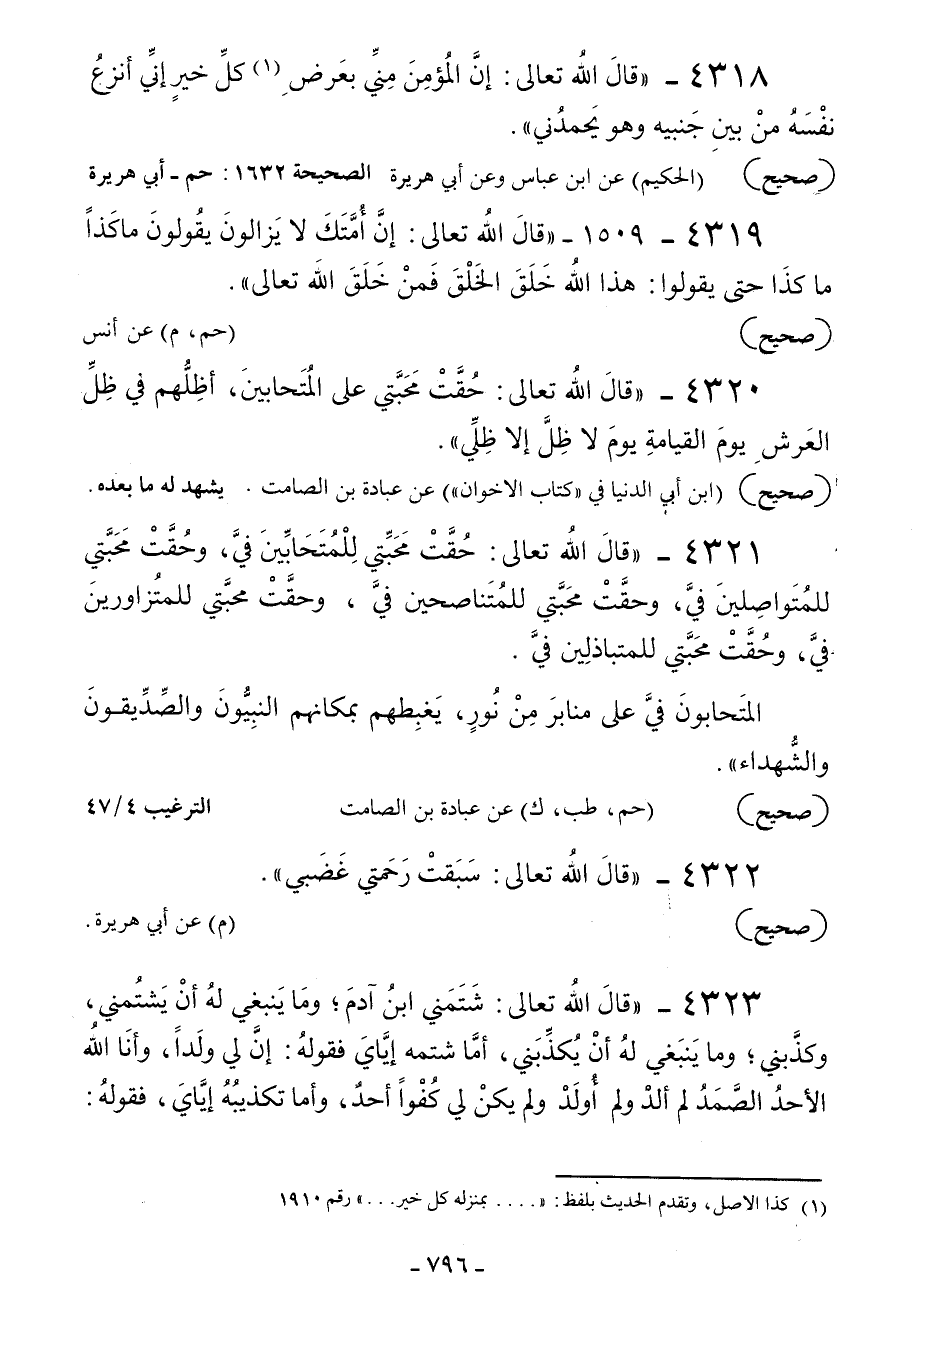 ٤٣١٨ - «قالَ اللهُ تعالى: إنَّ المُؤمِنَ مِنِّي بعَرضِ (١) كلِّ خيرٍ إنِّي أنزعُ
نفْسَهُ منْ بينِ جَنبيه وهو يَحمدُني».
(صحيح) (الحكيم) عن ابن عباس وعن أبي هريرة الصحيحة ١٦٣٢: حم - أبي هريرة
٤٣١٩ - ١٥٠٩ - «قالَ اللهُ تعالى: إنَّ أُمَّتَكَ لا يَزالونَ يقُولونَ ماكَذاً
ما كذَا حتى يقولوا: هذا اللهُ خَلَقَ الخَلْقَ فَمنْ خَلَقَ اللهَ تعالى».
(صحيح) (حم، م) عن أنس
٤٣٢٠ - «قالَ اللهُ تعالى: حُقَّتْ مَحَبَّتي على المُتَحابينَ، أظِلُّهم في ظِلِّ
العَرشِ يومَ القيامةِ يومَ لا ظِلَّ إلا ظِلِّي».
(صحيح) (ابن أبي الدنيا في «كتاب الاخوان») عن عبادة بن الصامت. يشهد له ما بعده.
٤٣٢١ - «قالَ اللهُ تعالى: حُقَّتْ مَحَبَّتِي لِلْمُتَحَابِّينَ فيَّ، وحُقَّتْ مَحَبَّتي
للمُتَواصِلينَ فيَّ، وحقَّتْ محَبَّتي للمُتَناصحين فيَّ، وحقَّتْ محبَّتي للمتُزاورينَ
فيَّ، وحُقَّتْ محَبَّتي للمتباذلِين فيَّ.
المتَحابونَ فيَّ على منابرَ مِنْ نُورٍ، يَغبِطهم بمكانهم النبيُّونَ والصِّدِّيقـونَ
والشُّهداءُ».
(صحيح) (حم، طب، ك) عن عبادة بن الصامت الترغيب ٤/٤٧
٤٣٢٢ - «قالَ اللهُ تعالى: سَبَقتْ رَحمَتي غَضَبي».
(صحيح) (م) عن أبي هريرة.
٤٣٢٣ - «قالَ اللهُ تعالى: شَتَمَني ابنُ آدمَ؛ ومَا يَنبغي لهُ أنْ يَشتُمني،
وكذَّبني؛ وما يَنبَغي لهُ أنْ يُكذِّبَني، أمَّا شتمه إيَّايَ فقولهُ: إنَّ لي ولَداً، وأنَا اللهُ
الأحدُ الصَّمَدُ لم ألدْ ولم أُولَدْ ولم يكنْ لي كُفْواً أحدٌ، وأما تكذيبُهُ إيَّايَ، فقولهُ:
(١) كذا الاصل، وتقدم الحديث بلفظ: «.... بمنزله كل خير...» رقم ١٩١٠
- ٧٩٦ -